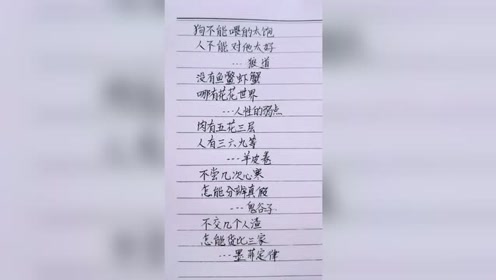 狗不能喂的太饱
人不能对他太好
---狼道
没有鱼鳖虾蟹
哪有花花世界
---人性的弱点
肉有五花三层
人有三六九等
---羊皮卷
不尝几次心寒
怎能分辨真假
---鬼谷子
不交几个人渣
怎能货比三家
---墨菲定律